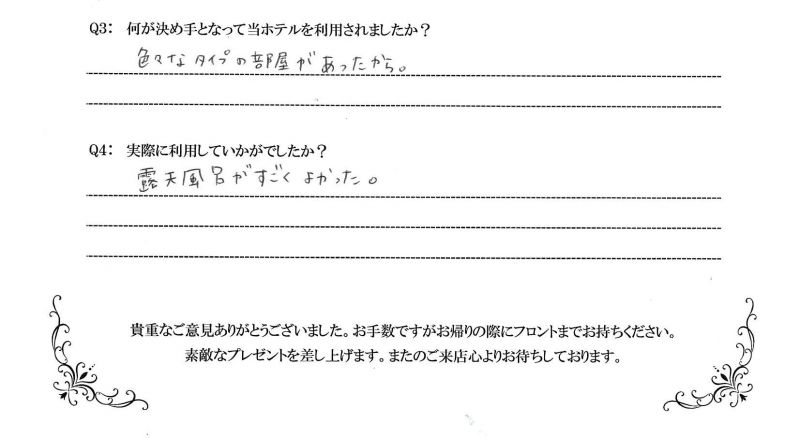 Q3: 何が決め手となって当ホテルを利用されましたか？
色々なタイプの部屋があったから。
Q4: 実際に利用していかがでしたか？
露天風呂がすごくよかった。
貴重なご意見ありがとうございました。お手数ですがお帰りの際にフロントまでお持ちください。
素敵なプレゼントを差し上げます。またのご来店心よりお待ちしております。